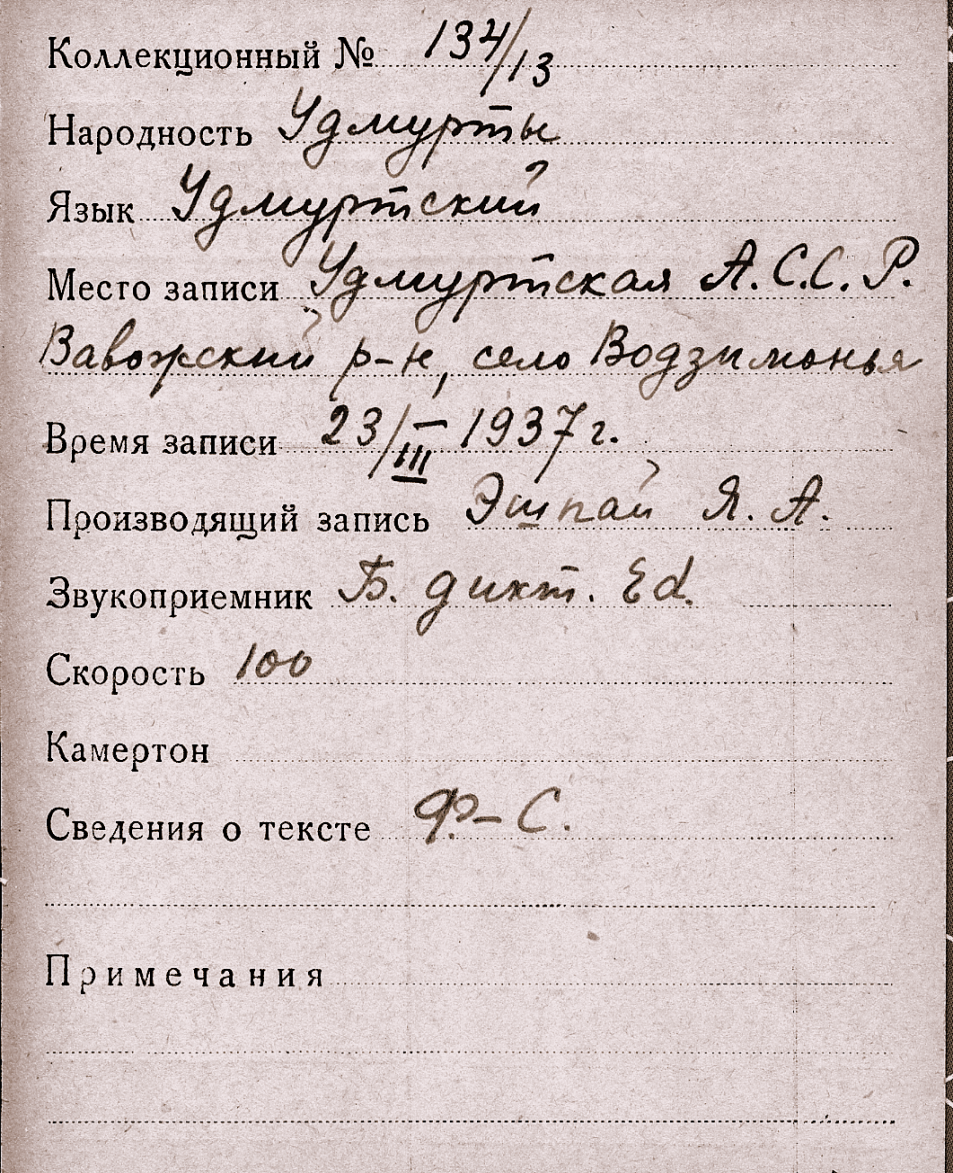 Коллекционный № 134/13
Народность Удмурты
Язык Удмуртский
Место записи Удмуртская А.С.С.Р.
Вавожский р-н, село Водзимонья
Время записи 23/III – 1937 г.
Производящий запись Эшпай Я. А.
Звукоприемник Б. дикт. Ed.
Скорость 100
Камертон
Сведения о тексте Ф.– С.
Примечания